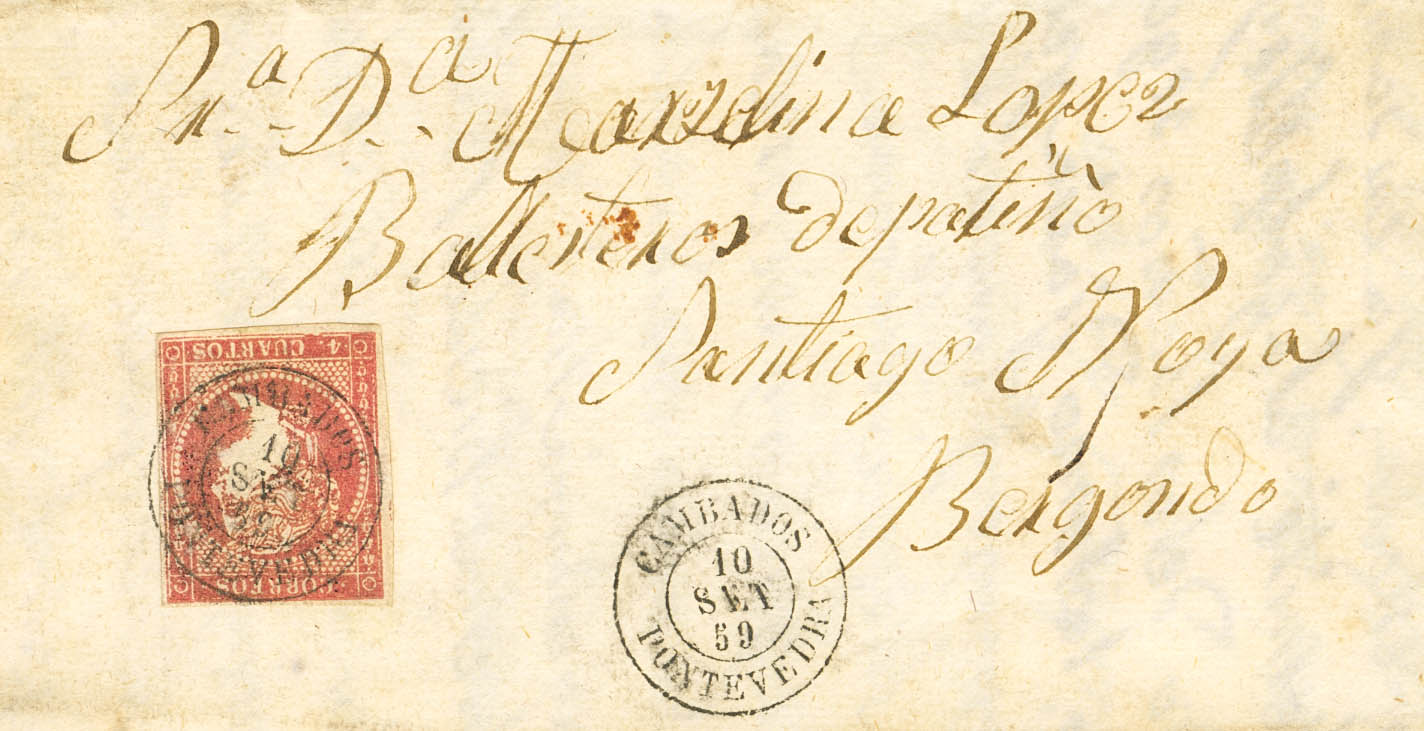 Sr.ª D.ª Marzelina Lopez
Ballesteros de patiño
Santiago Noya
Bergondo
4 CUARTOS
CORREOS
CAMBADOS
10
SET
59
PONTEVEDRA
CAMBADOS
10
SET
59
PONTEVEDRA